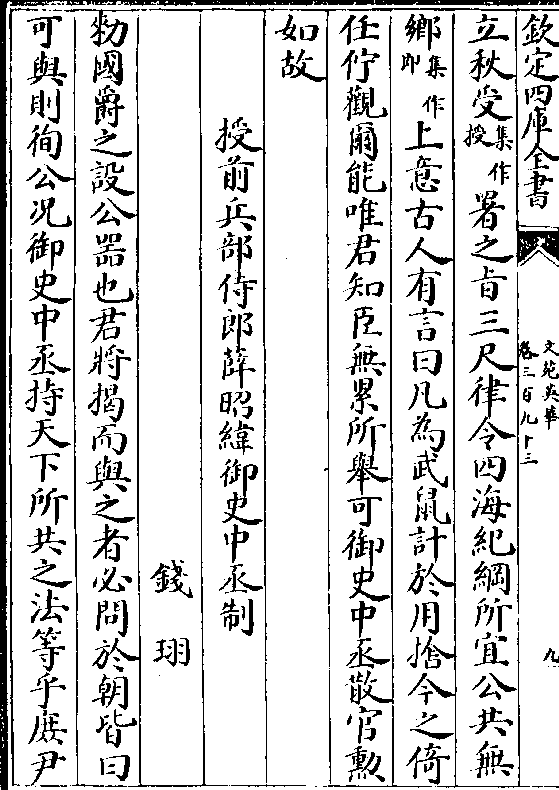 欽定四庫全書
文苑英華
卷三百九十三
九
立秋受集作授署之旨三尺律令四海紀綱所宜公共無
鄉集作即上意古人有言曰凡為武鼠計於用捨今之倚
任佇觀爾能唯君知臣無累所舉可御史中丞散官勲
如故
授前兵部侍郎薛昭緯御史中丞制
錢珝
勑國爵之設公器也君將揭而與之者必問於朝皆曰
可與則徇公況御史中丞持天下所共之法等乎庶尹